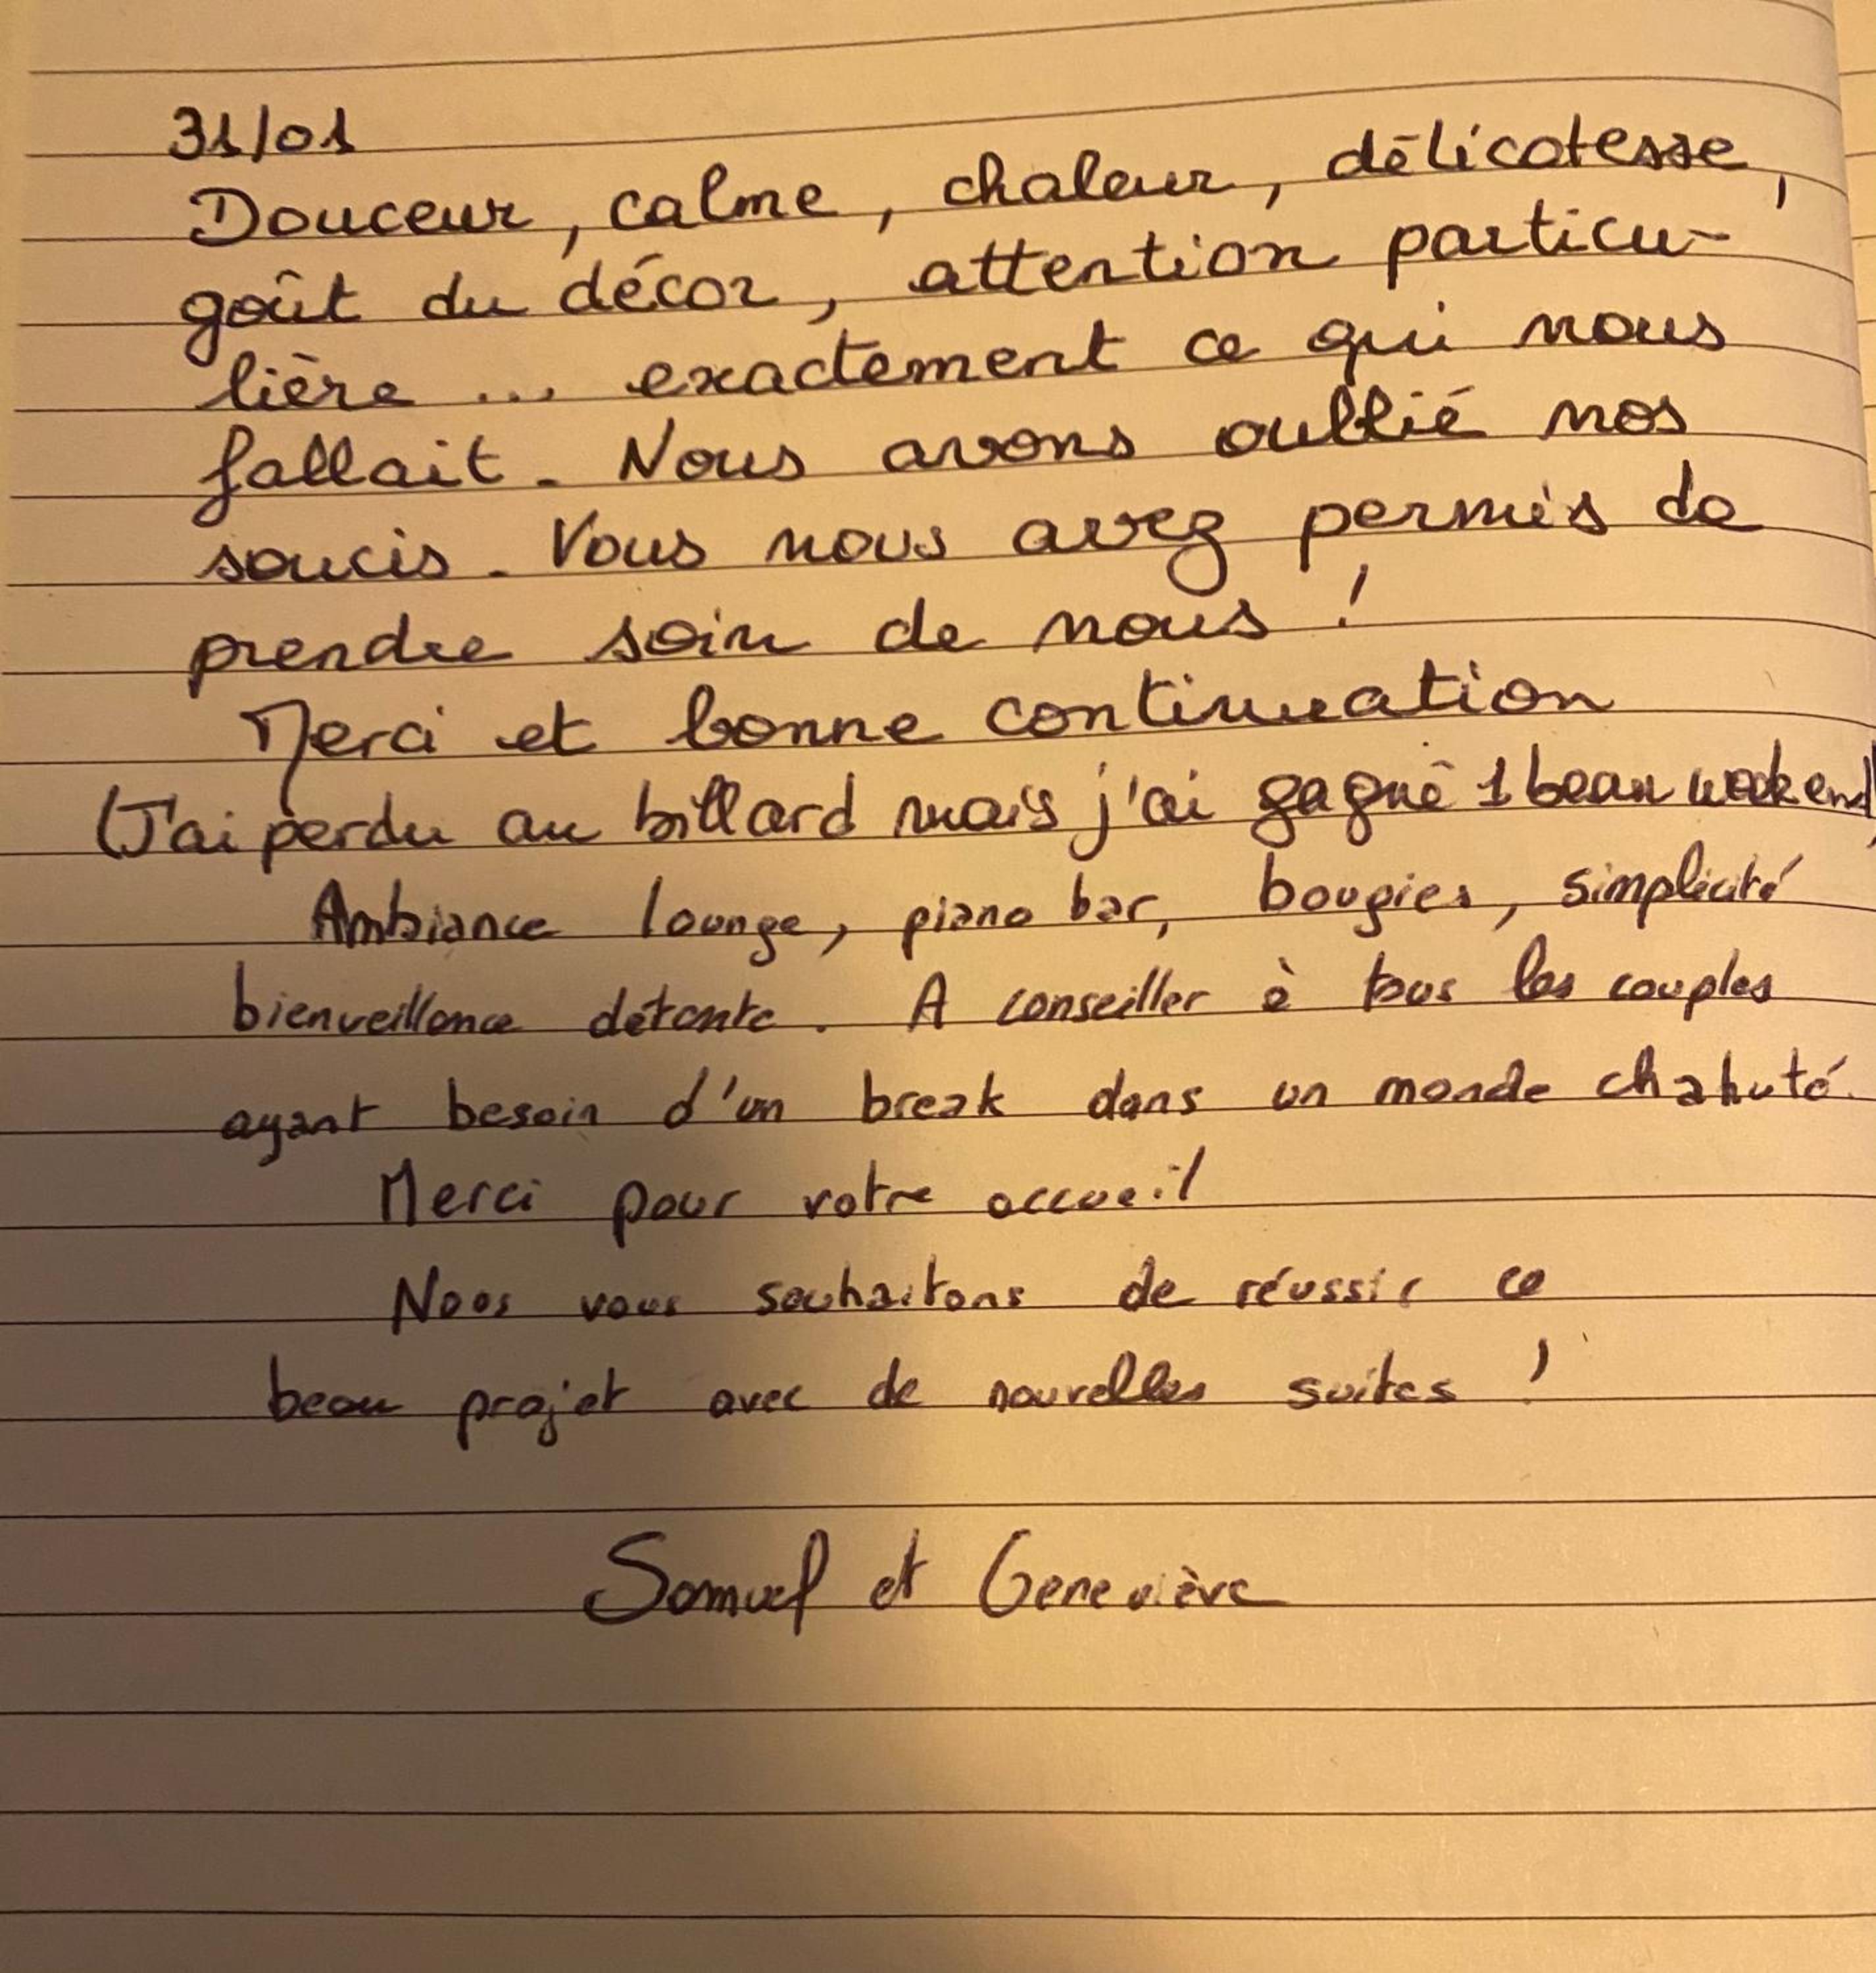 31/01
Douceur, calme, chaleur, délicatesse,
goût du décor, attention particu-
lière ... exactement ce qui nous
fallait. Nous avons oublié nos
soucis. Vous nous avez permis de
prendre soin de nous !
Merci et bonne continuation
(J'ai perdu au billard mais j'ai gagné 1 beau week end)
Ambiance lounge, piano bar, bougies, simplicité
bienveillance détente. A conseiller à tous les couples
ayant besoin d'un break dans un monde chahuté.
Merci pour votre accueil
Nous vous souhaitons de réussir ce
beau projet avec de nouvelles suites !
Samuel et Geneviève